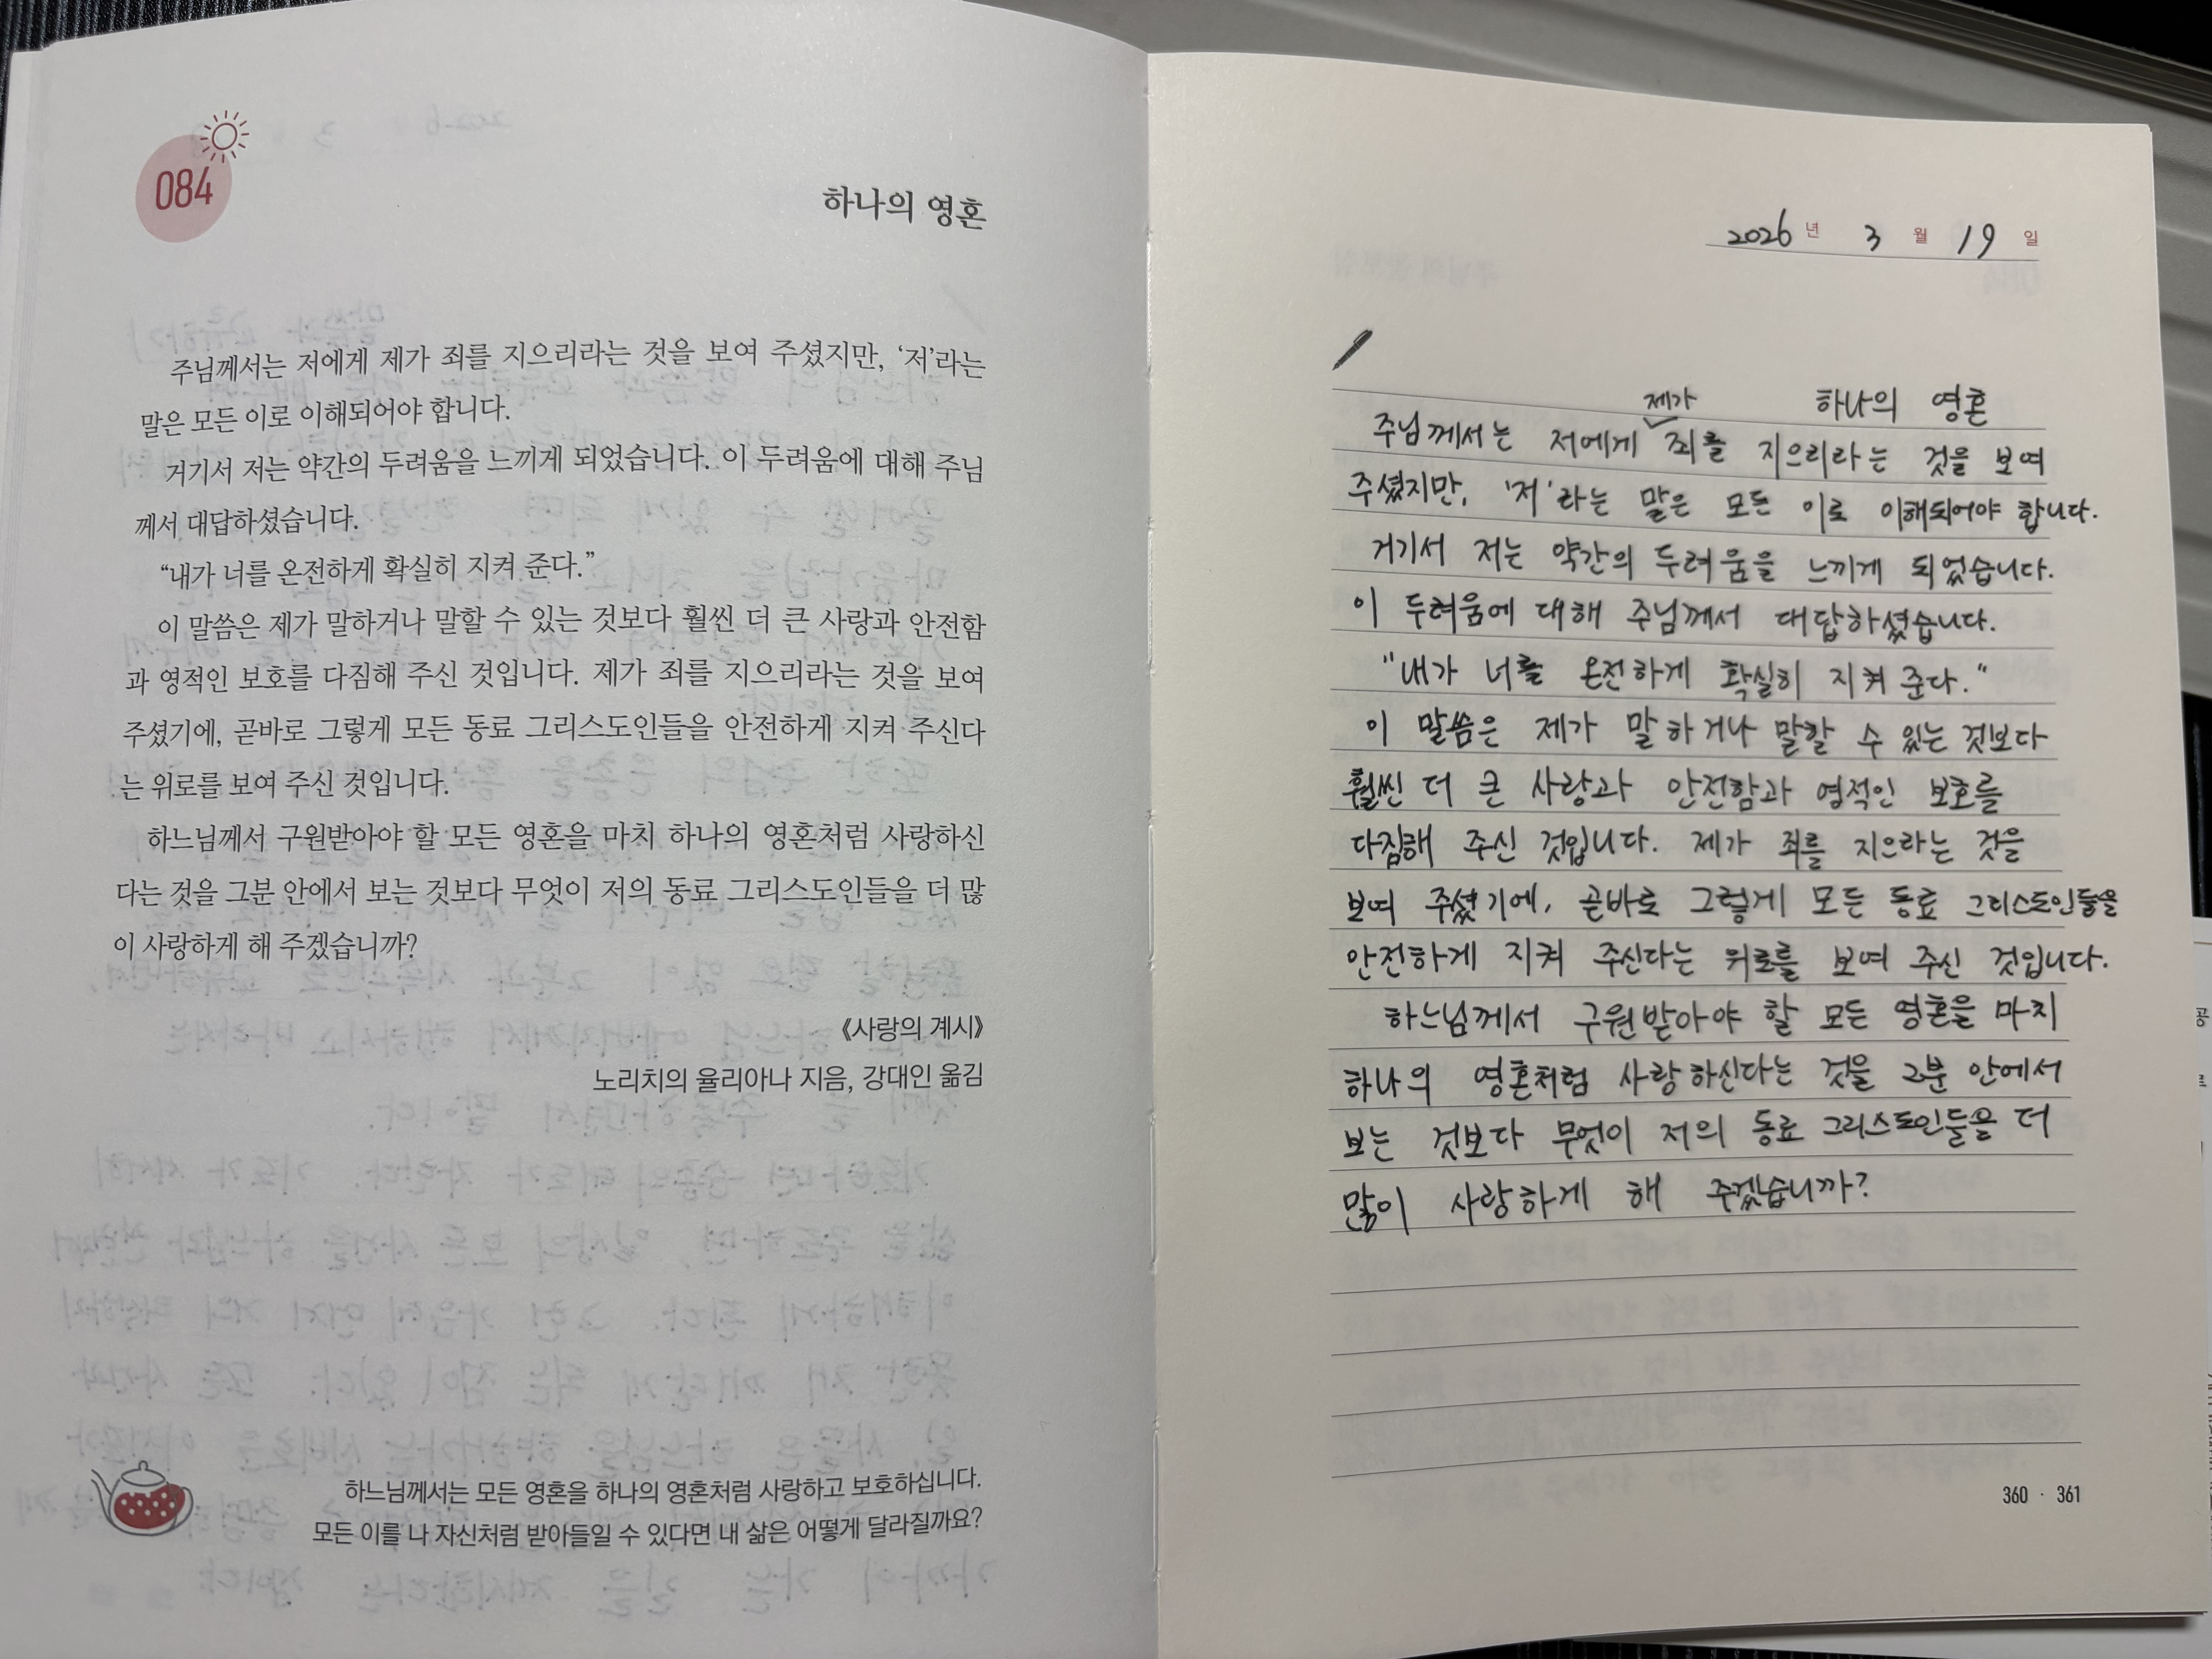 084
하나의 영혼
주님께서는 저에게 제가 죄를 지으리라는 것을 보여 주셨지만, ‘저’라는
말은 모든 이로 이해되어야 합니다.
거기서 저는 약간의 두려움을 느끼게 되었습니다. 이 두려움에 대해 주님
께서 대답하셨습니다.
“내가 너를 온전하게 확실히 지켜 준다.”
이 말씀은 제가 말하거나 말할 수 있는 것보다 훨씬 더 큰 사랑과 안전함
과 영적인 보호를 다짐해 주신 것입니다. 제가 죄를 지으리라는 것을 보여
주셨기에, 곧바로 그렇게 모든 동료 그리스도인들을 안전하게 지켜 주신다
는 위로를 보여 주신 것입니다.
하느님께서 구원받아야 할 모든 영혼을 마치 하나의 영혼처럼 사랑하신
다는 것을 그분 안에서 보는 것보다 무엇이 저의 동료 그리스도인들을 더 많
이 사랑하게 해 주겠습니까?
《사랑의 계시》
노리치의 율리아나 지음, 강대인 옮김
하느님께서는 모든 영혼을 하나의 영혼처럼 사랑하고 보호하십니다.
모든 이를 나 자신처럼 받아들일 수 있다면 내 삶은 어떻게 달라질까요?
2026 년 3 월 19 일
하나의 영혼
제가
주님께서는 저에게 죄를 지으리라는 것을 보여
주셨지만, '저'라는 말은 모든 이로 이해되어야 합니다.
거기서 저는 약간의 두려움을 느끼게 되었습니다.
이 두려움에 대해 주님께서 대답하셨습니다.
"내가 너를 온전하게 확실히 지켜 준다."
이 말씀은 제가 말하거나 말할 수 있는 것보다
훨씬 더 큰 사랑과 안전함과 영적인 보호를
다짐해 주신 것입니다. 제가 죄를 지으라는 것을
보여 주셨기에, 곧바로 그렇게 모든 동료 그리스도인들을
안전하게 지켜 주신다는 위로를 보여 주신 것입니다.
하느님께서 구원받아야 할 모든 영혼을 마치
하나의 영혼처럼 사랑하신다는 것을 그분 안에서
보는 것보다 무엇이 저의 동료 그리스도인들을 더
많이 사랑하게 해 주겠습니까?
360 · 361